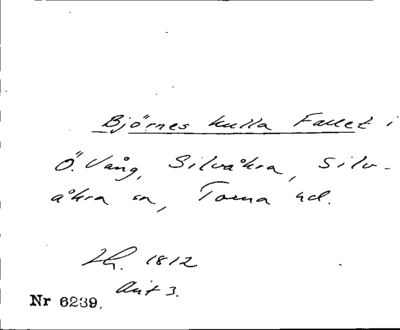 Björnes kulla Fallet i
Ö. Vång, Silvåkra, Silv-
åkra sn, Torna hd.
Lh. 1812
Akt 3.
Nr 6239.